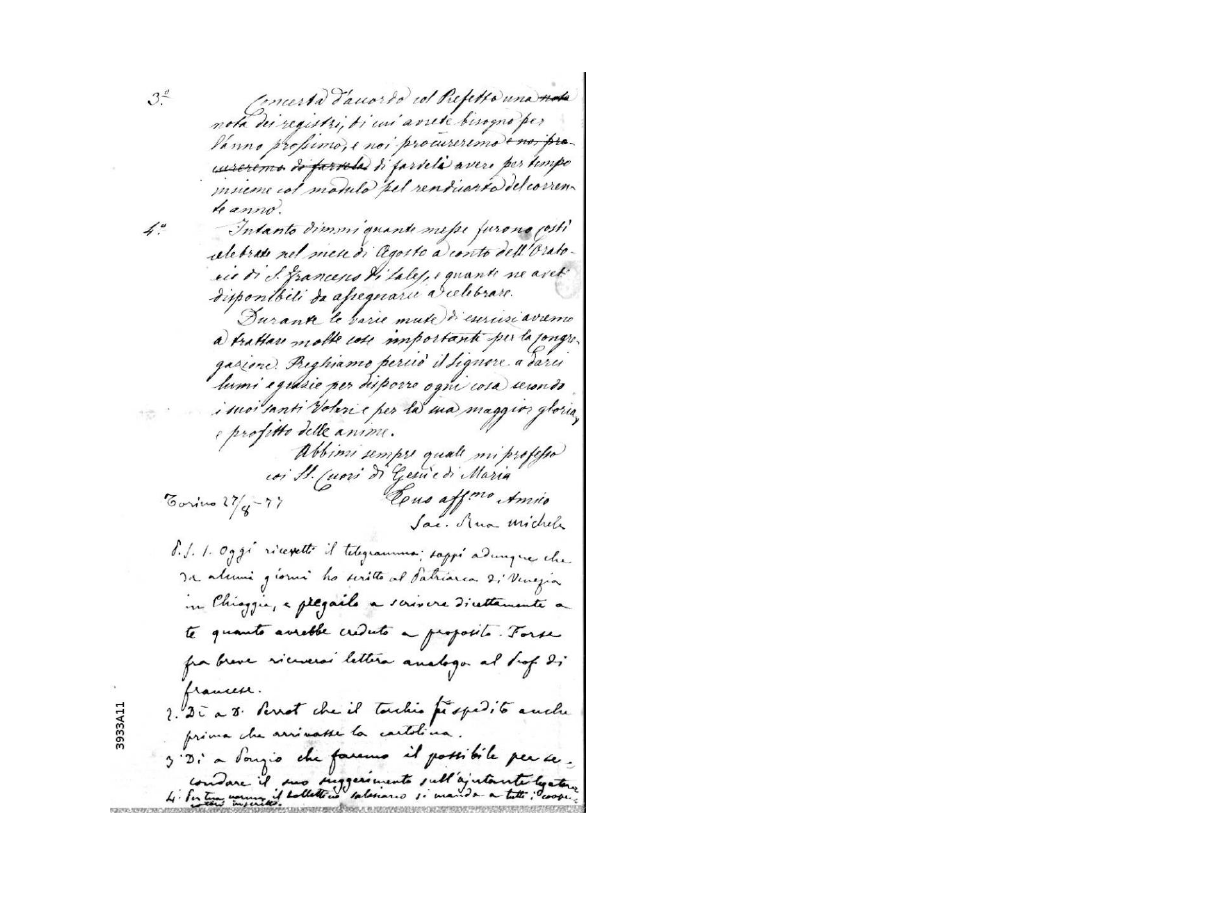 3.º Concerta d'accordo col Prefetto una nota
nota dei registri, di cui avrete bisogno per
l'anno prossimo, e noi procureremo e noi pro-
cureremo di farvela di fartela avere per tempo
insieme col modulo pel rendiconto del corren-
te anno.
4.º Intanto dimmi quante messe furono costì
celebrate nel mese di Agosto a conto dell'Orato-
rio di S. Francesco di Sales, e quante ne avete
disponibili da assegnarci a celebrare.
Durante le varie mute di esercizi avremo
a trattare molte cose importanti per la congre-
gazione. Preghiamo perciò il Signore a darci
lumi e grazie per disporre ogni cosa secondo
i suoi santi Voleri e per la sua maggior gloria,
e profitto delle anime.
Abbimi sempre quale mi professo
coi SS. Cuori di Gesù e di Maria
Torino 27/8-77 Tuo affmo Amico
Sac. Rua Michele
P.S. 1. Oggi ricevetti il telegramma; sappi adunque che
da alcuni giorni ho scritto al Patriarca di Venezia
in Chioggia, e pregailo a scrivere direttamente a
te quanto avrebbe creduto a proposito. Forse
fra breve riceverai lettera analoga al Prof. di
francese.
2. Dì a D. Perrot che il torchio fu spedito anche
prima che arrivasse la cartolina.
3. Dì a Ponzio che faremo il possibile per se-
condare il suo suggerimento sull'ajutante legatore
4. Per tua norma, il bollettino salesiano si manda a tutti i coope-